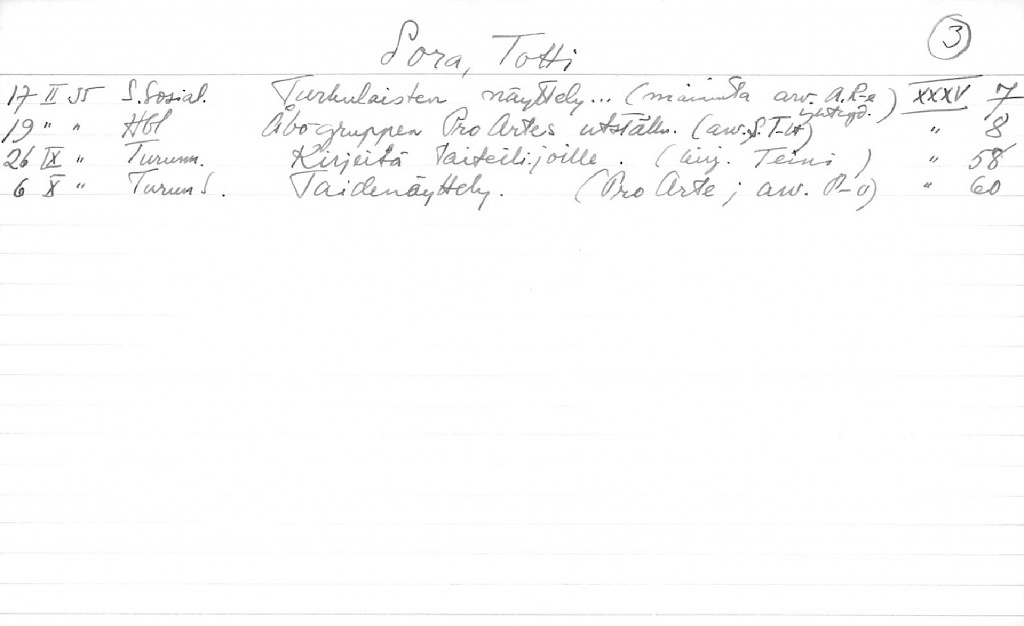 Sora, Totti 3
17 II 55 S.Sosial. Turkulaisten näyttely... (maininta arv. A.R-e yhteyd.) XXXV 7
19 " " Hbl Åbogruppen Pro Artes utställn. (arv. S. T-lt) " 8
26 IX " Turunm. Kirjeitä taiteilijoille. (kirj. Teini) " 58
6 X " Turun S. Taidenäyttely. (Pro Arte; arv. P-o) " 60